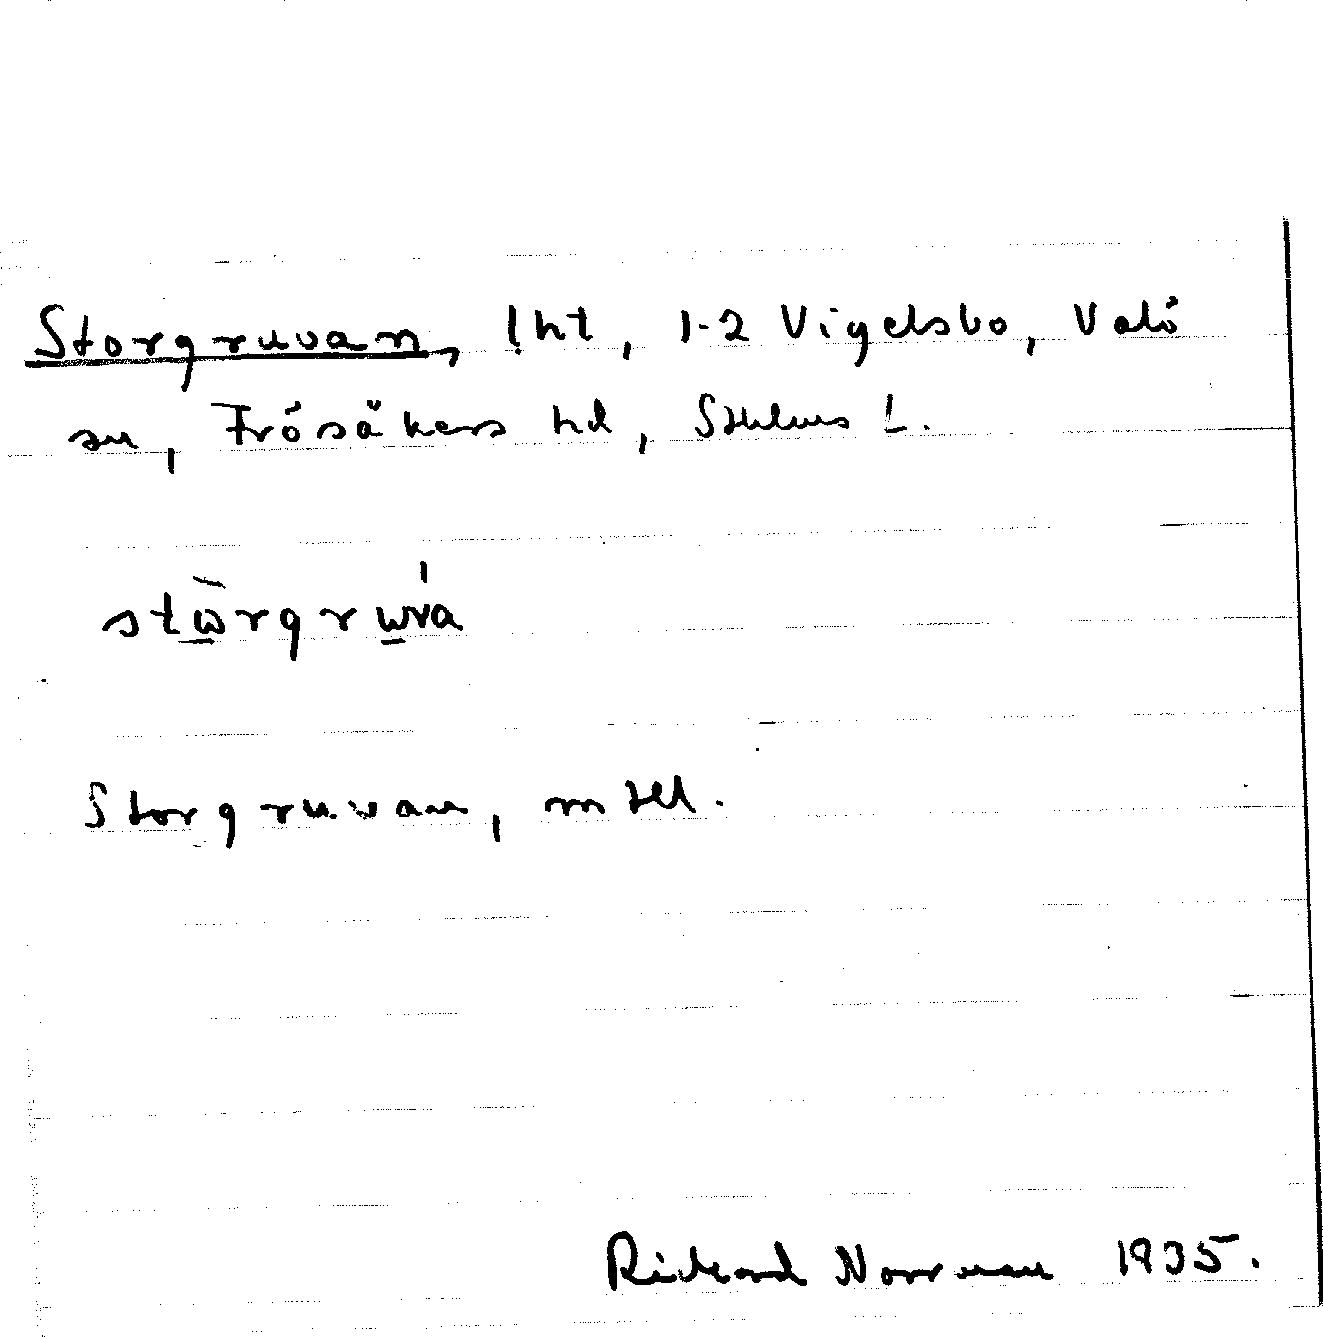 Storgruvan, lht, 1-2 Vigelsbo, Valö
sn, Frösåkers hd, Sthlms L.
stωrgrωva
Storgruvan, m tll.
Rickard Norrman 1935.